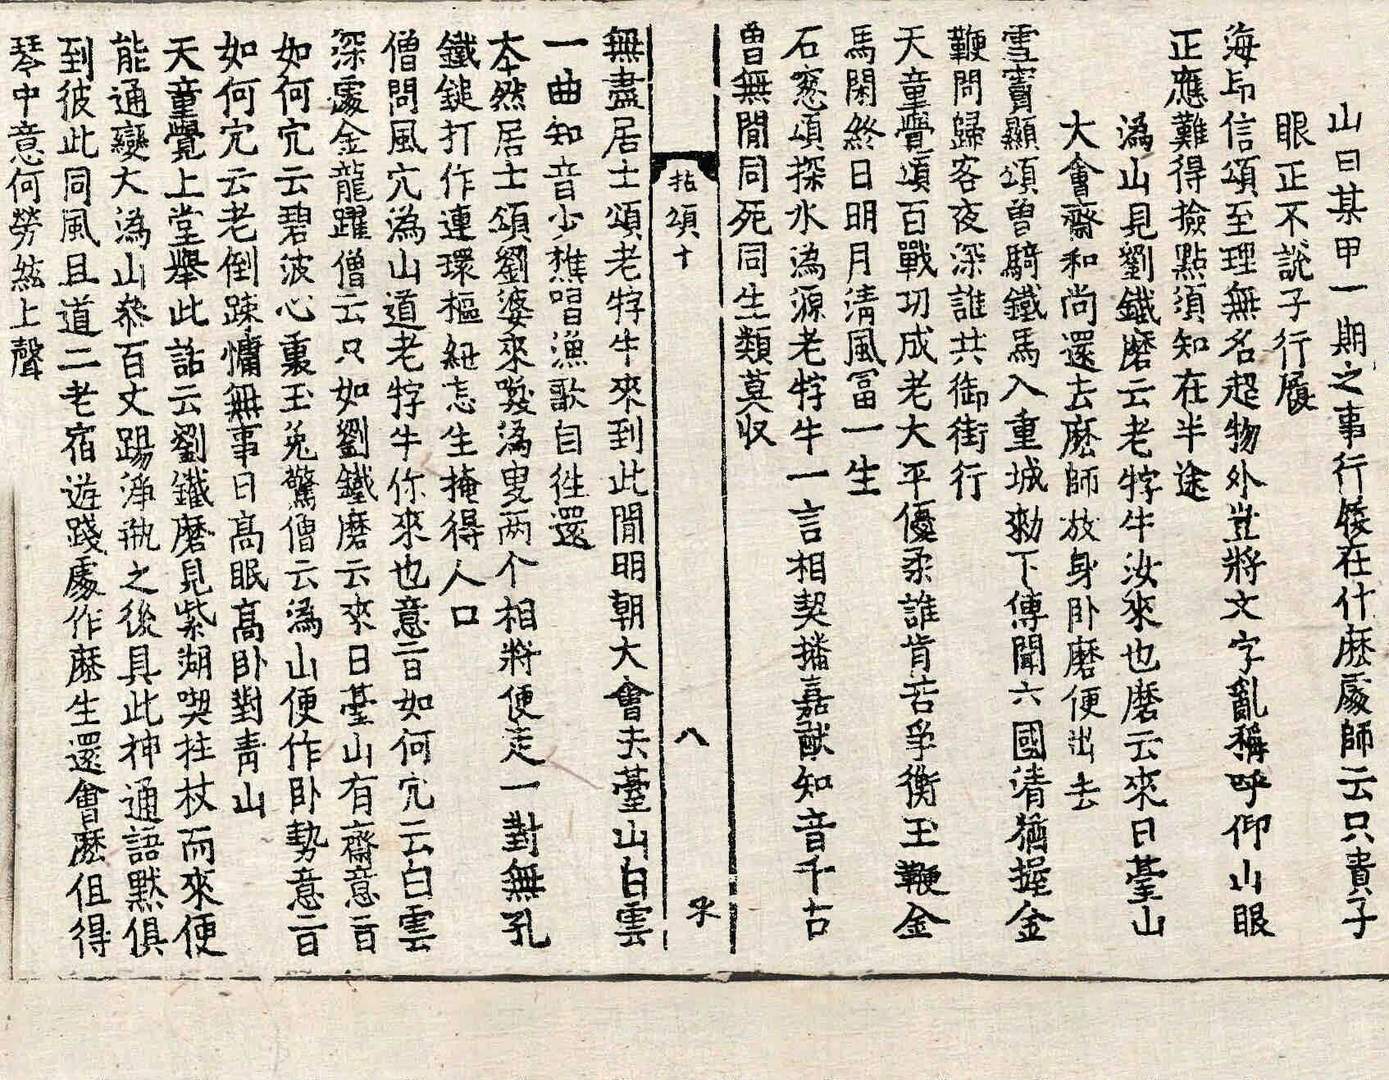 山曰某甲一期之事行履在什麽處師云只貴子
眼正不說子行履
海印信頌至理無名超物外豈將文字亂稱呼仰山眼
正應難得撿點須知在半途
潙山見劉鐵磨云老牸牛汝來也磨云來日臺山
大會齋和尚還去麽師放身卧磨便出去
雪竇顯頌曾騎鐵馬入重城勑下傳聞六國清猶握金
鞭問歸客夜深誰共御街行
天童覺頌百戰功成老大平優柔誰肯苦爭衡玉鞭金
馬閑終日明月清風冨一生
石窓頌探水潙源老牸牛一言相契播嘉猷知音千古
曾無間同死同生類莫收
拈頌十 八
無盡居士頌老牸牛來到此間明朝大會去臺山白雲
一曲知音少樵唱漁歌自徃還
本然居士頌劉婆來喚潙叟两个相將便走一對無孔
鐵鎚打作連環樞紐忘生掩得人口
僧問風穴潙山道老牸牛你來也意旨如何穴云白雲
深處金龍躍僧云只如劉鐵磨云來日臺山有齋意旨
如何穴云碧波心裏玉兎驚僧云潙山便作卧勢意旨
如何穴云老倒踈慵無事日高眠高卧對青山
天童覺上堂擧此話云劉鐵磨見紫湖喫拄杖而來便
能通變大潙山叅百丈踢淨瓶之後具此神通語默俱
到彼此同風且道二老宿遊踐處作麽生還會麽但得
琴中意何勞絃上聲